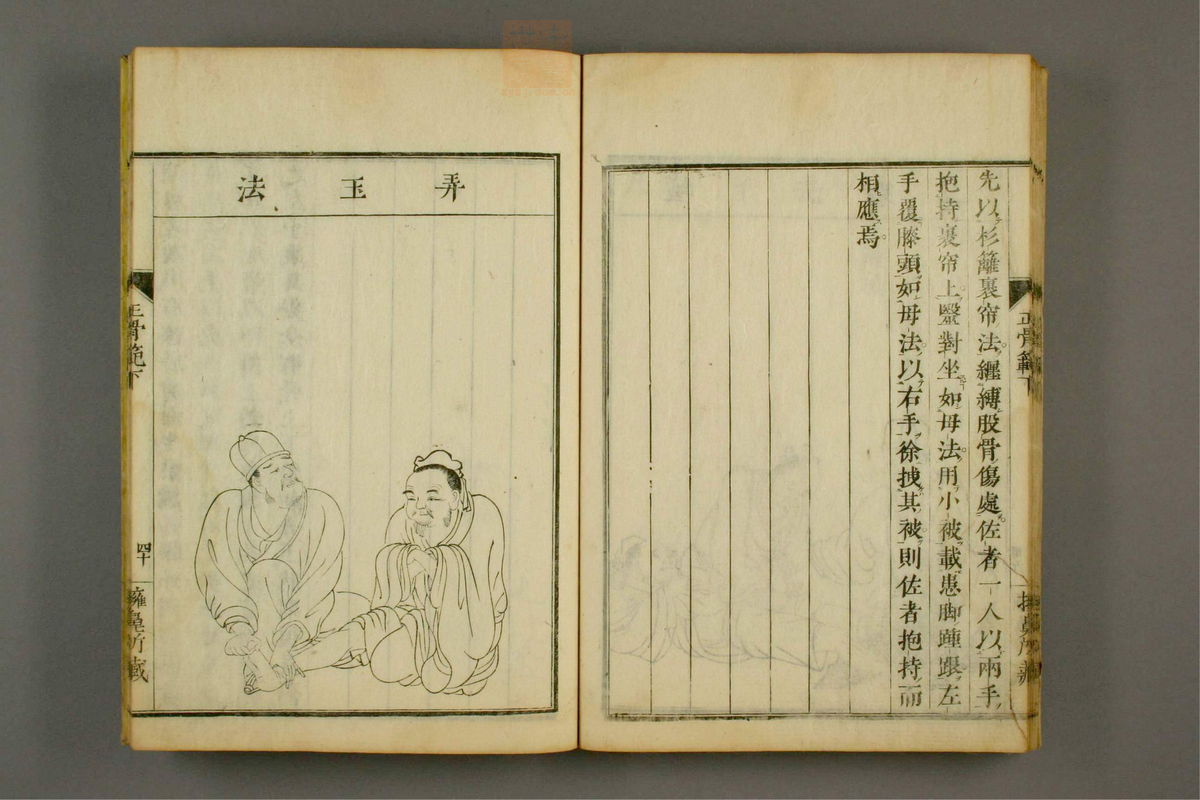 先以杉籬裹帘法纒縛股骨傷處佐者一人以兩手
抱持裹帘上毉對坐如母法用小被載患脚踵跟左
手覆膝頭如母法以右手徐拽其被則佐者抱持而
相應焉
正骨範下
弄玉法
正骨範下
四十